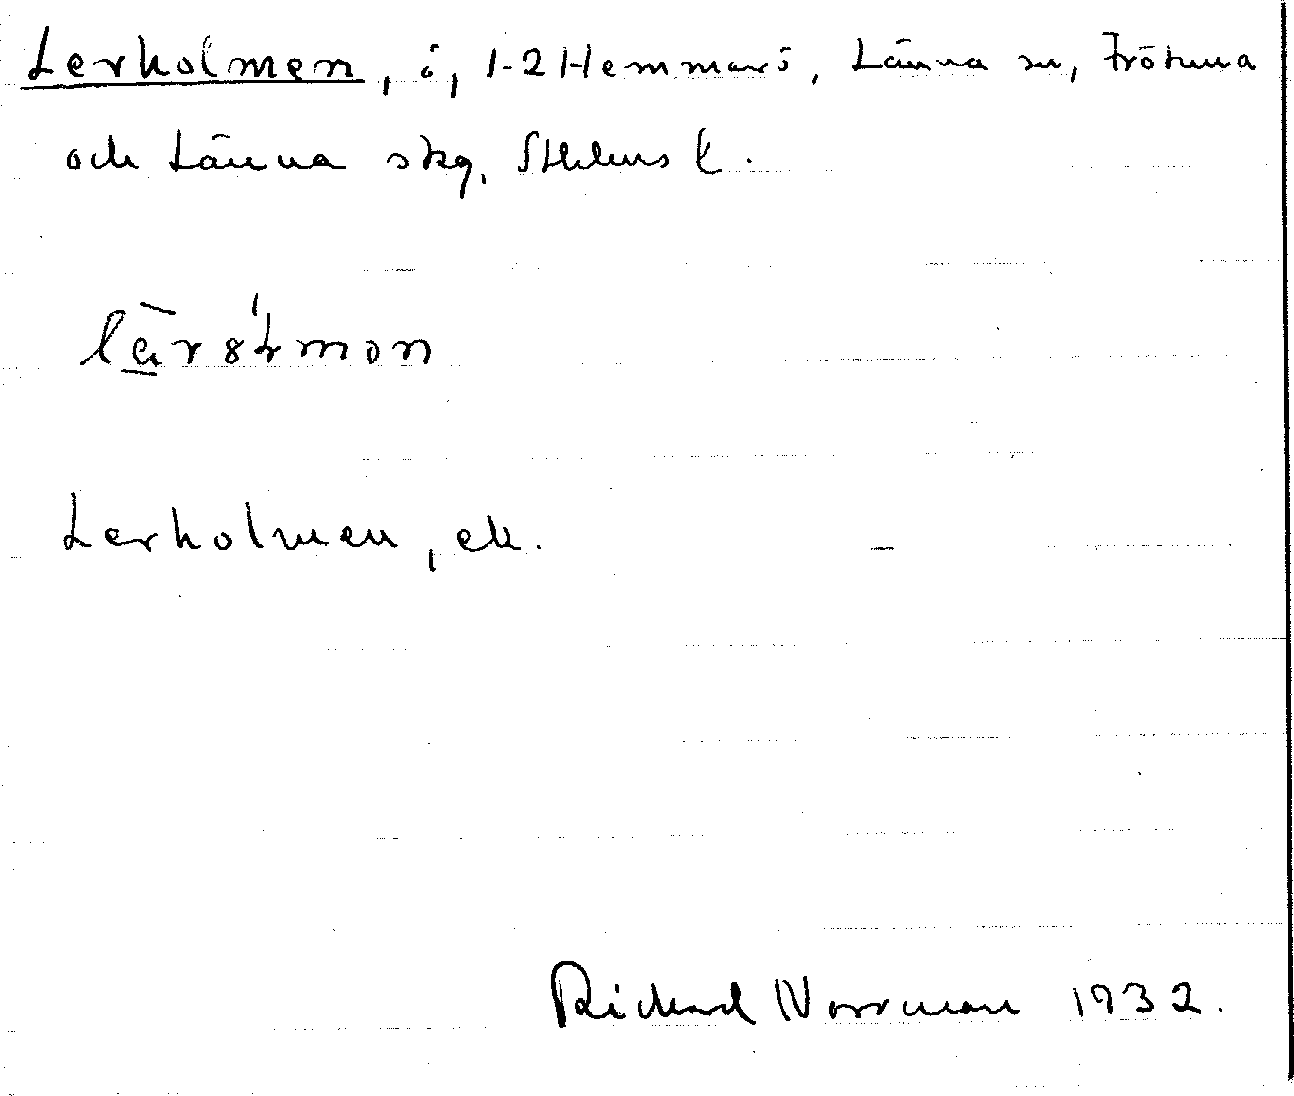 Lerholmen, ö, 1-2 Hemmarö, Länna sn, Frötuna
och Länna skg, Sthlms l.
Lerholmen, ek.
Richard Norrman 1932.